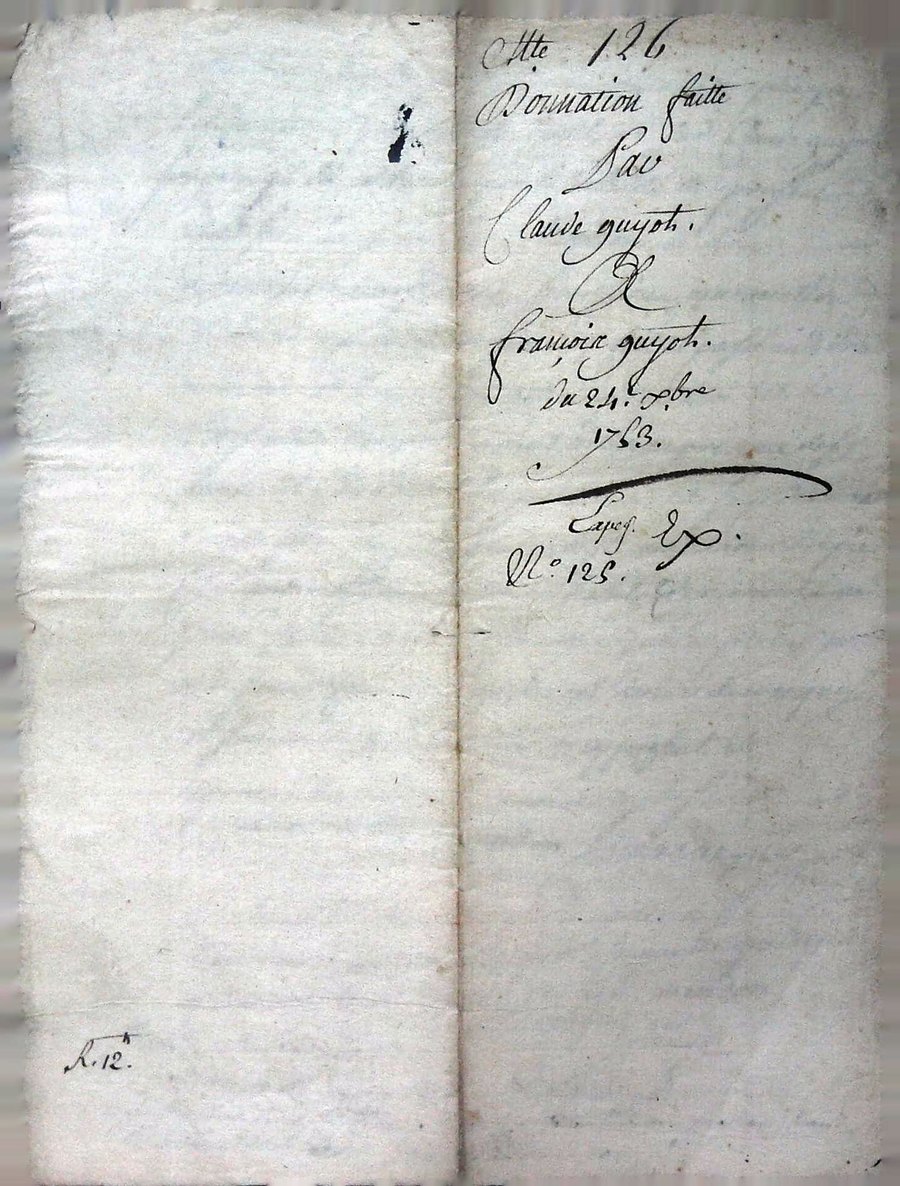 Cotte 126
Donnation faitte
Par
Claude guyot.
&
françois guyot.
du 24. xbre
1753.
Exp.
N.º 125.
R. 12